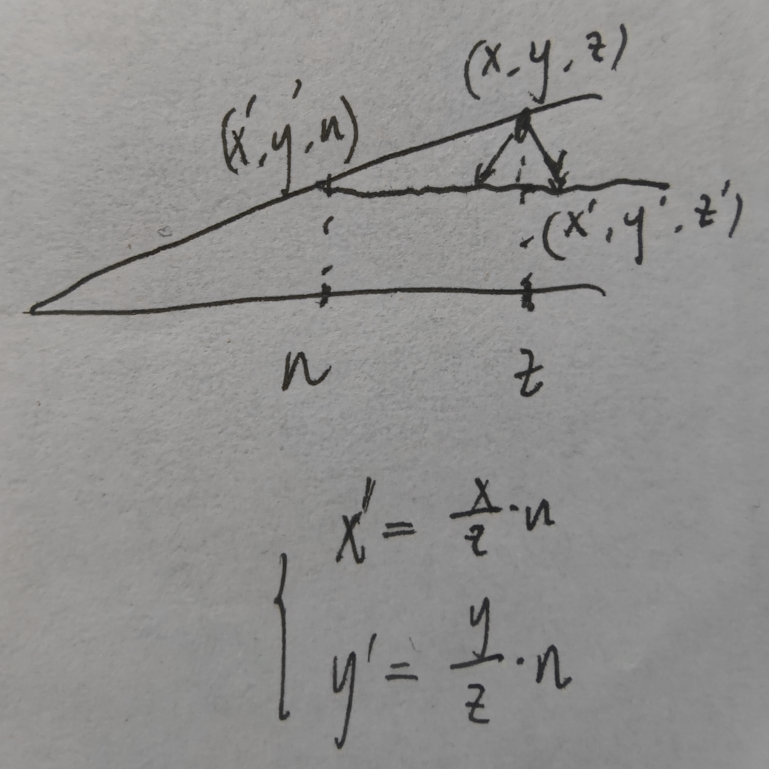 (x, y, z)
(x', y', n)
(x', y', z')
n z
x' = x/z · n
y' = y/z · n